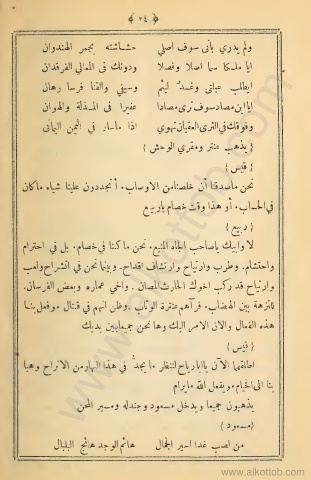 ﴿ ٢٤ ﴾
ولم يدري باني سوف اصلي حشاشته بجمر الهندوان
ايا ملكا سما اصلا وفصلا ودونك في المعالي الفرقدان
ايطلب عباني وغد لئيم وسيفي والقنا فرسا رهان
ايا ابن مصاد سوف ترى مصادا عفيرا في المذلة والهوان
وفوقك في الثرى العقبان تهوي اذا ماسار في اليمن اليماني
﴿ يذهب عنتر ومقري الوحش ﴾
﴿ قيس ﴾
نحن ماصدقنا أن خلصنا من الاوصاب. أتجددون علينا شياء ماكان
في الحساب. أو هذا وقت خصام ياربيع
﴿ ربيع ﴾
لا وابيك ياصاحب الجاه المنيع. نحن ما كنا في خصام. بل في احترام
واحتشام. وطرب وارتياح وارتشاف اقداح. وبينما نحن في انشراح ولعب
وارتياح قد ركب اخوك الحارث المصان. واخي عماره وبعض الفرسان.
للنزهة بين الهضاب. فرآهم عنترة الوثاب. وظن انهم في قتال. وفعل بنا
هذه الفعال والان الامر اليك وها نحن جميعا بين يديك
﴿ قيس ﴾
اطلقهما الآن ياابارياح لننظر مايجد في هذا النهار من الاتراح وهيا
بنا الى الخيام ويفعل الله مايرام
يذهبون جميعا ويدخل مسعود وجندله ومسير المحن
﴿ مسعود ﴾
من لصب غدا اسير الجمال هائم الوجد هائج البلبال
www.alkottob.com